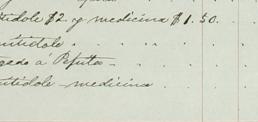 tidole $2 y medicina $1.50.
ntidole
gado á
ntidole medicina